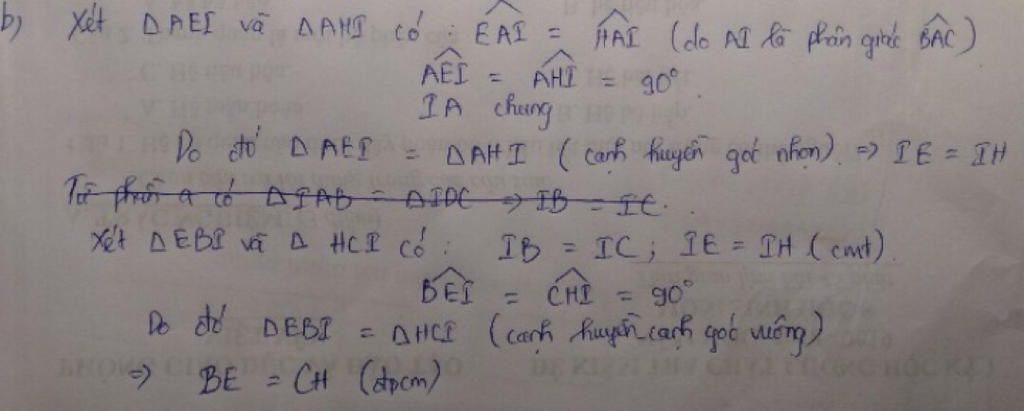 b) Xét ΔAEI và ΔAHI có : EAI = HAI (do AI là phân giác BAC)
AEI = AHI = 90°.
IA chung
Do đó ΔAEI = ΔAHI (cạnh huyền góc nhọn). => IE = IH
Từ phần a có ΔIAB = ΔIDC => IB = IC.
Xét ΔEBI và Δ HCI có : IB = IC ; IE = IH (cmt).
BEI = CHI = 90°
Do đó ΔEBI = ΔHCI (cạnh huyền_cạnh góc vuông)
=> BE = CH (đpcm)